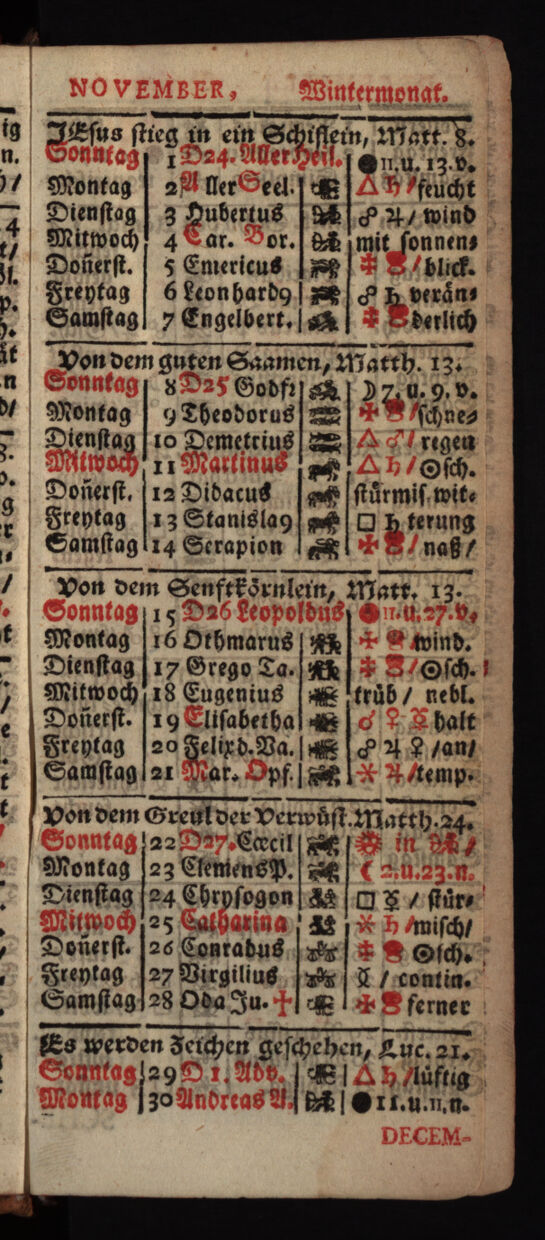 NOVEMBER, Wintermonat.
JEsus stieg in ein Schifflein, Matt. 8.
Sonntag 1 D24. Aller Heil. ●11.u.13.v.
Montag 2 Aller Seel. △ ♄/feucht
Dienstag 3 Hubertus ☍ ♃/ wind
Mitwoch 4 Car. Bor. mit sonnen⸗
Don̄erst. 5 Emericus /blick.
Freytag 6 Leonhard9 ☍ ♄ verän⸗
Samstag 7 Engelbert. derlich
Von dem guten Saamen, Matth. 13.
Sonntag 8 D25 Godfr ☽ 7.u.9.v.
Montag 9 Theodorus /schnee⸗
Dienstag 10 Demetrius △ ♂/ regen
Mitwoch 11 Martinus △ ♄/ ⊙sch.
Don̄erst. 12 Didacus stürmis. wit⸗
Freytag 13 Stanisla9 □ ♄ terung
Samstag 14 Serapion / naß/
Von dem Senffkörnlein, Matt. 13.
Sonntag 15 D26 Leopoldus ●11.u.27.v.
Montag 16 Othmarus /wind.
Dienstag 17 Grego Ta. /⊙sch.
Mitwoch 18 Eugenius trüb/ nebl.
Don̄erst. 19 Elisabetha ☌ ♀ ☿ halt
Freytag 20 Felix d. Va. ☍ ♃ ♀ /an/
Samstag 21 Mar. Opf. ⚹ ♃/temp.
Von dem Greul der Verwüst. Matth. 24.
Sonntag 22 D27. Cœcil in /
Montag 23 Clemens P. ☾ 2.u.23.n.
Dienstag 24 Chrysogon □ ☿ / stür⸗
Mitwoch 25 Catharina ⚹ ♄/misch/
Don̄erst. 26 Conradus ⊙sch.
Freytag 27 Virgilius ☿ / contin.
Samstag 28 Oda Ju. † ferner
Es werden Zeichen geschehen, Luc. 21.
Sonntag 29 D 1. Adv. △ ♄/lüftig
Montag 30 Andreas A. ●11.u.11.n.
DECEM-